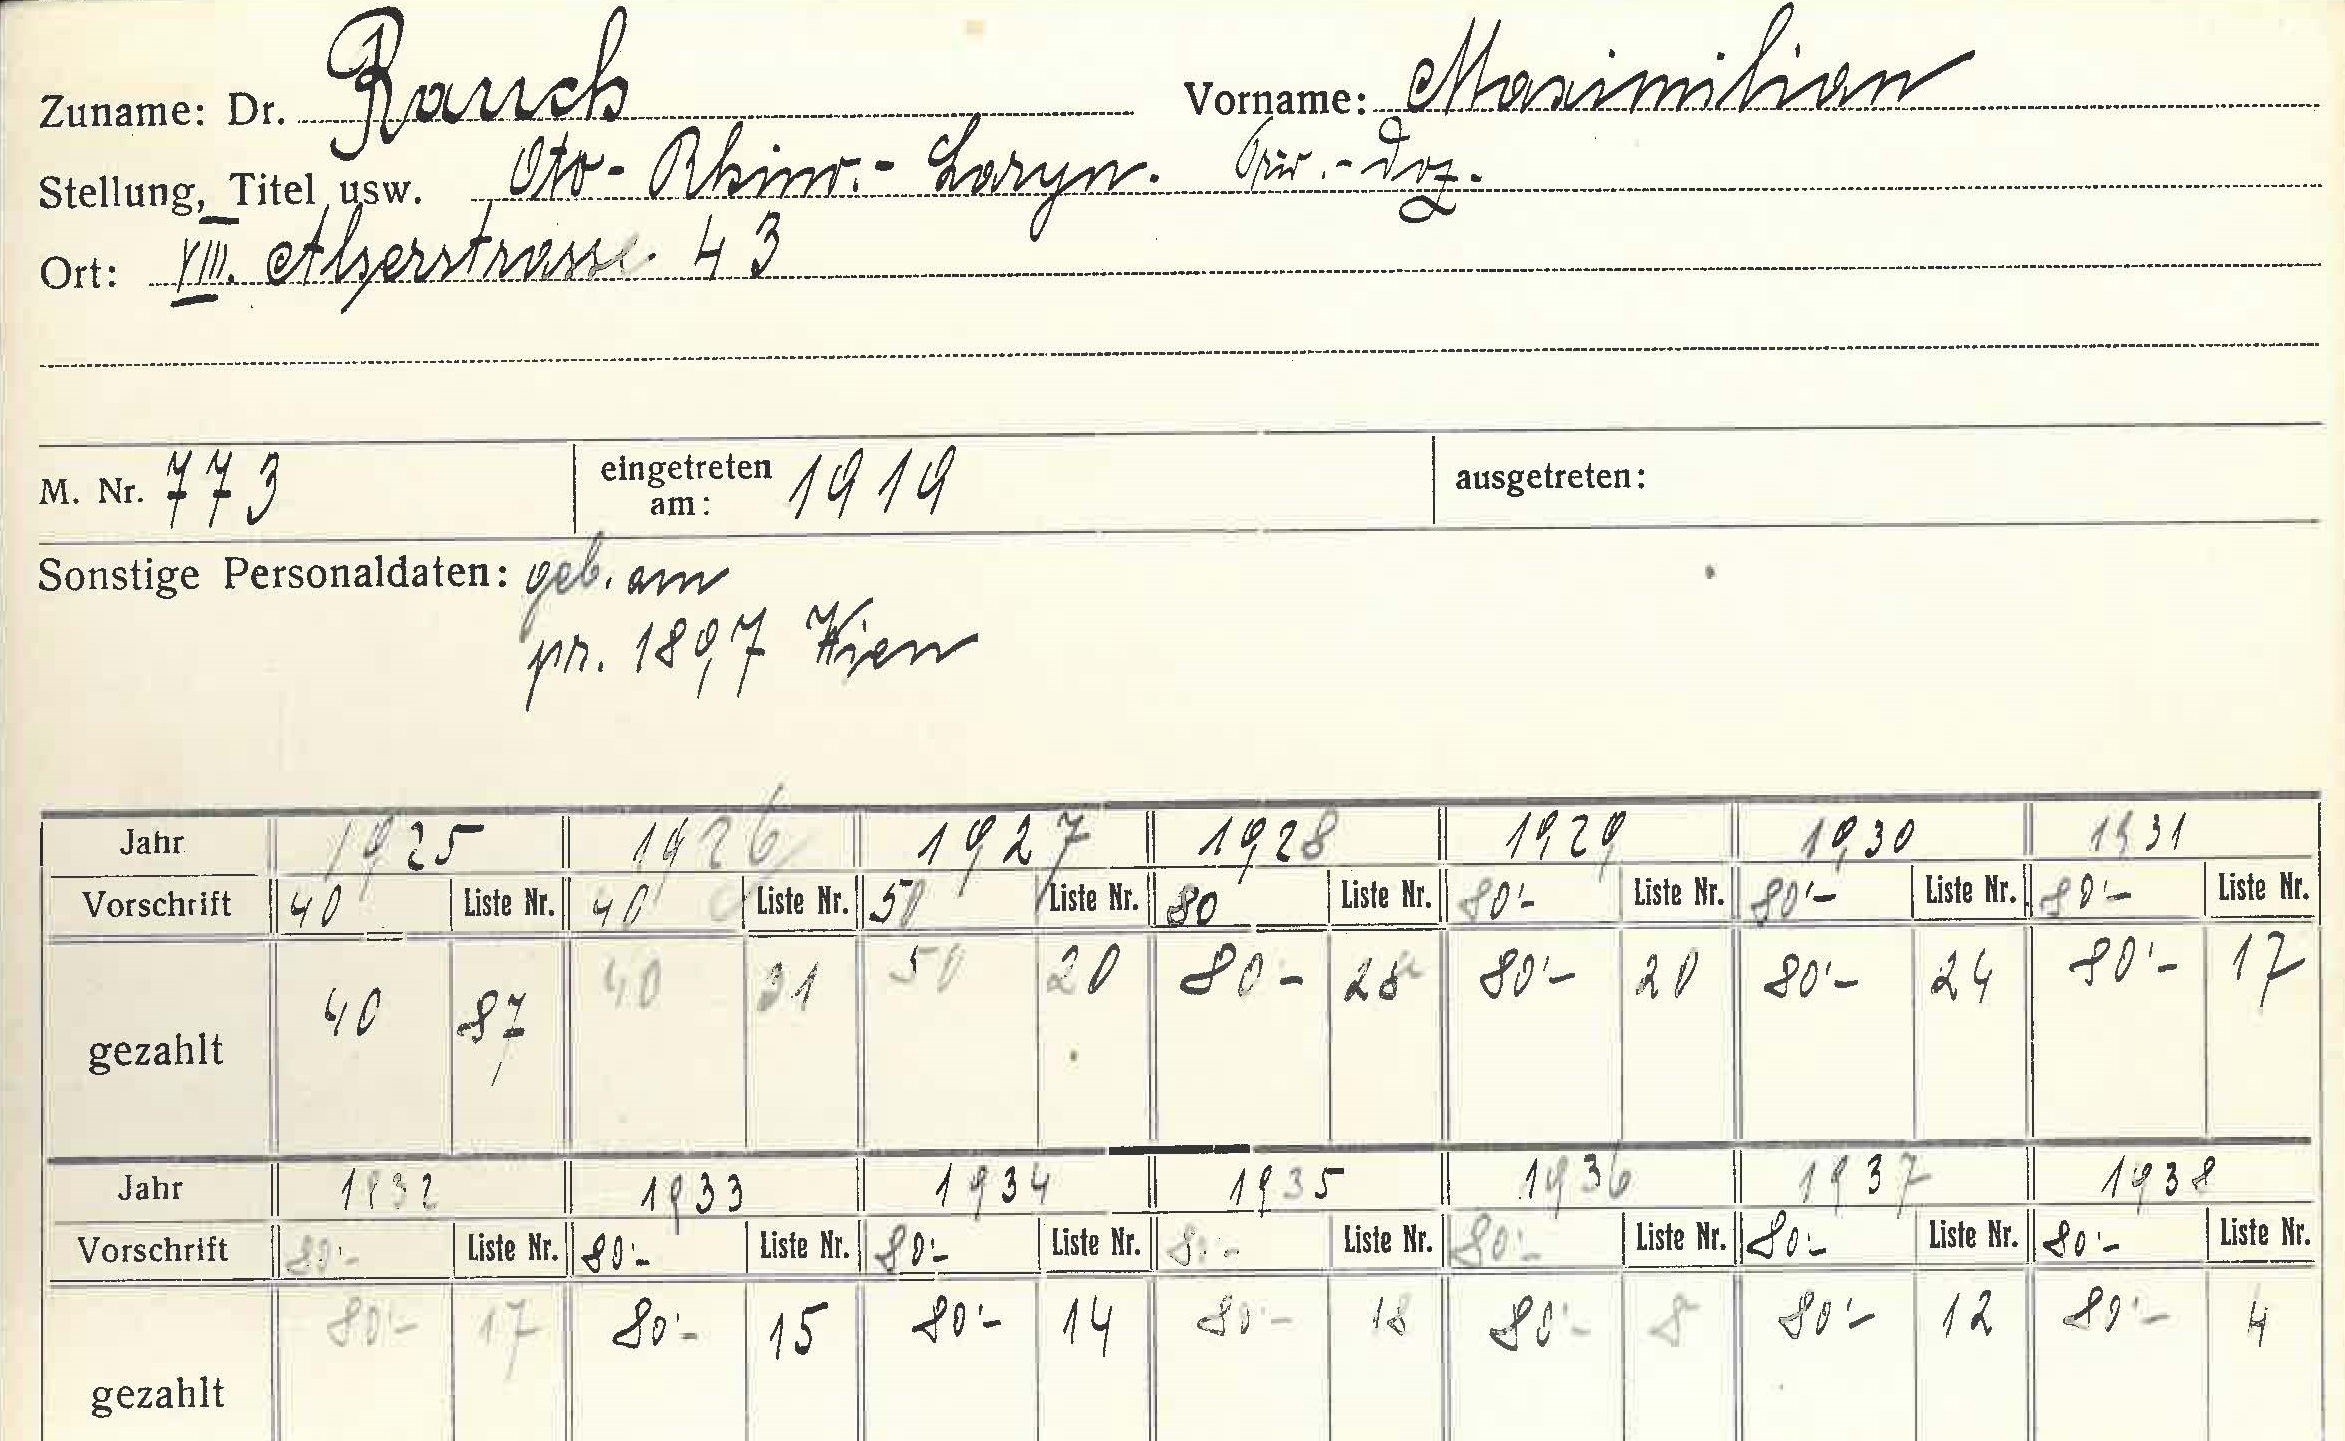 Zuname: Dr. Rauch Vorname: Maximilian
Stellung, Titel usw. Oto-Rhino.-Laryn. Priv.-Doz.
Ort: VIII. Alserstrasse 43
M. Nr. 773 eingetreten am: 1919 ausgetreten:
Sonstige Personaldaten: geb. am
pr. 1897 Wien
Jahr 1925 1926 1927 1928 1929 1930 1931
Vorschrift 40 Liste Nr. 40 Liste Nr. 50 Liste Nr. 80 Liste Nr. 80'- Liste Nr. 80'- Liste Nr. 80'- Liste Nr.
gezahlt 40 87 40 31 50 20 80- 28 80'- 20 80'- 24 80'- 17
Jahr 1932 1933 1934 1935 1936 1937 1938
Vorschrift 80'- Liste Nr. 80'- Liste Nr. 80'- Liste Nr. 80'- Liste Nr. 80'- Liste Nr. 80'- Liste Nr. 80'- Liste Nr.
gezahlt 80'- 17 80'- 15 80'- 14 80'- 18 80'- 8 80'- 12 80'- 4